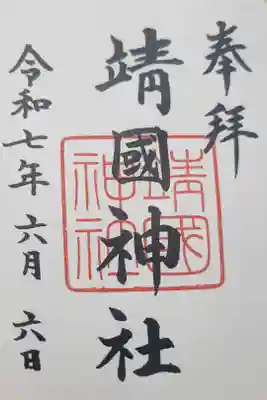 奉拝
靖國神社
靖國神社
令和七年六月六日